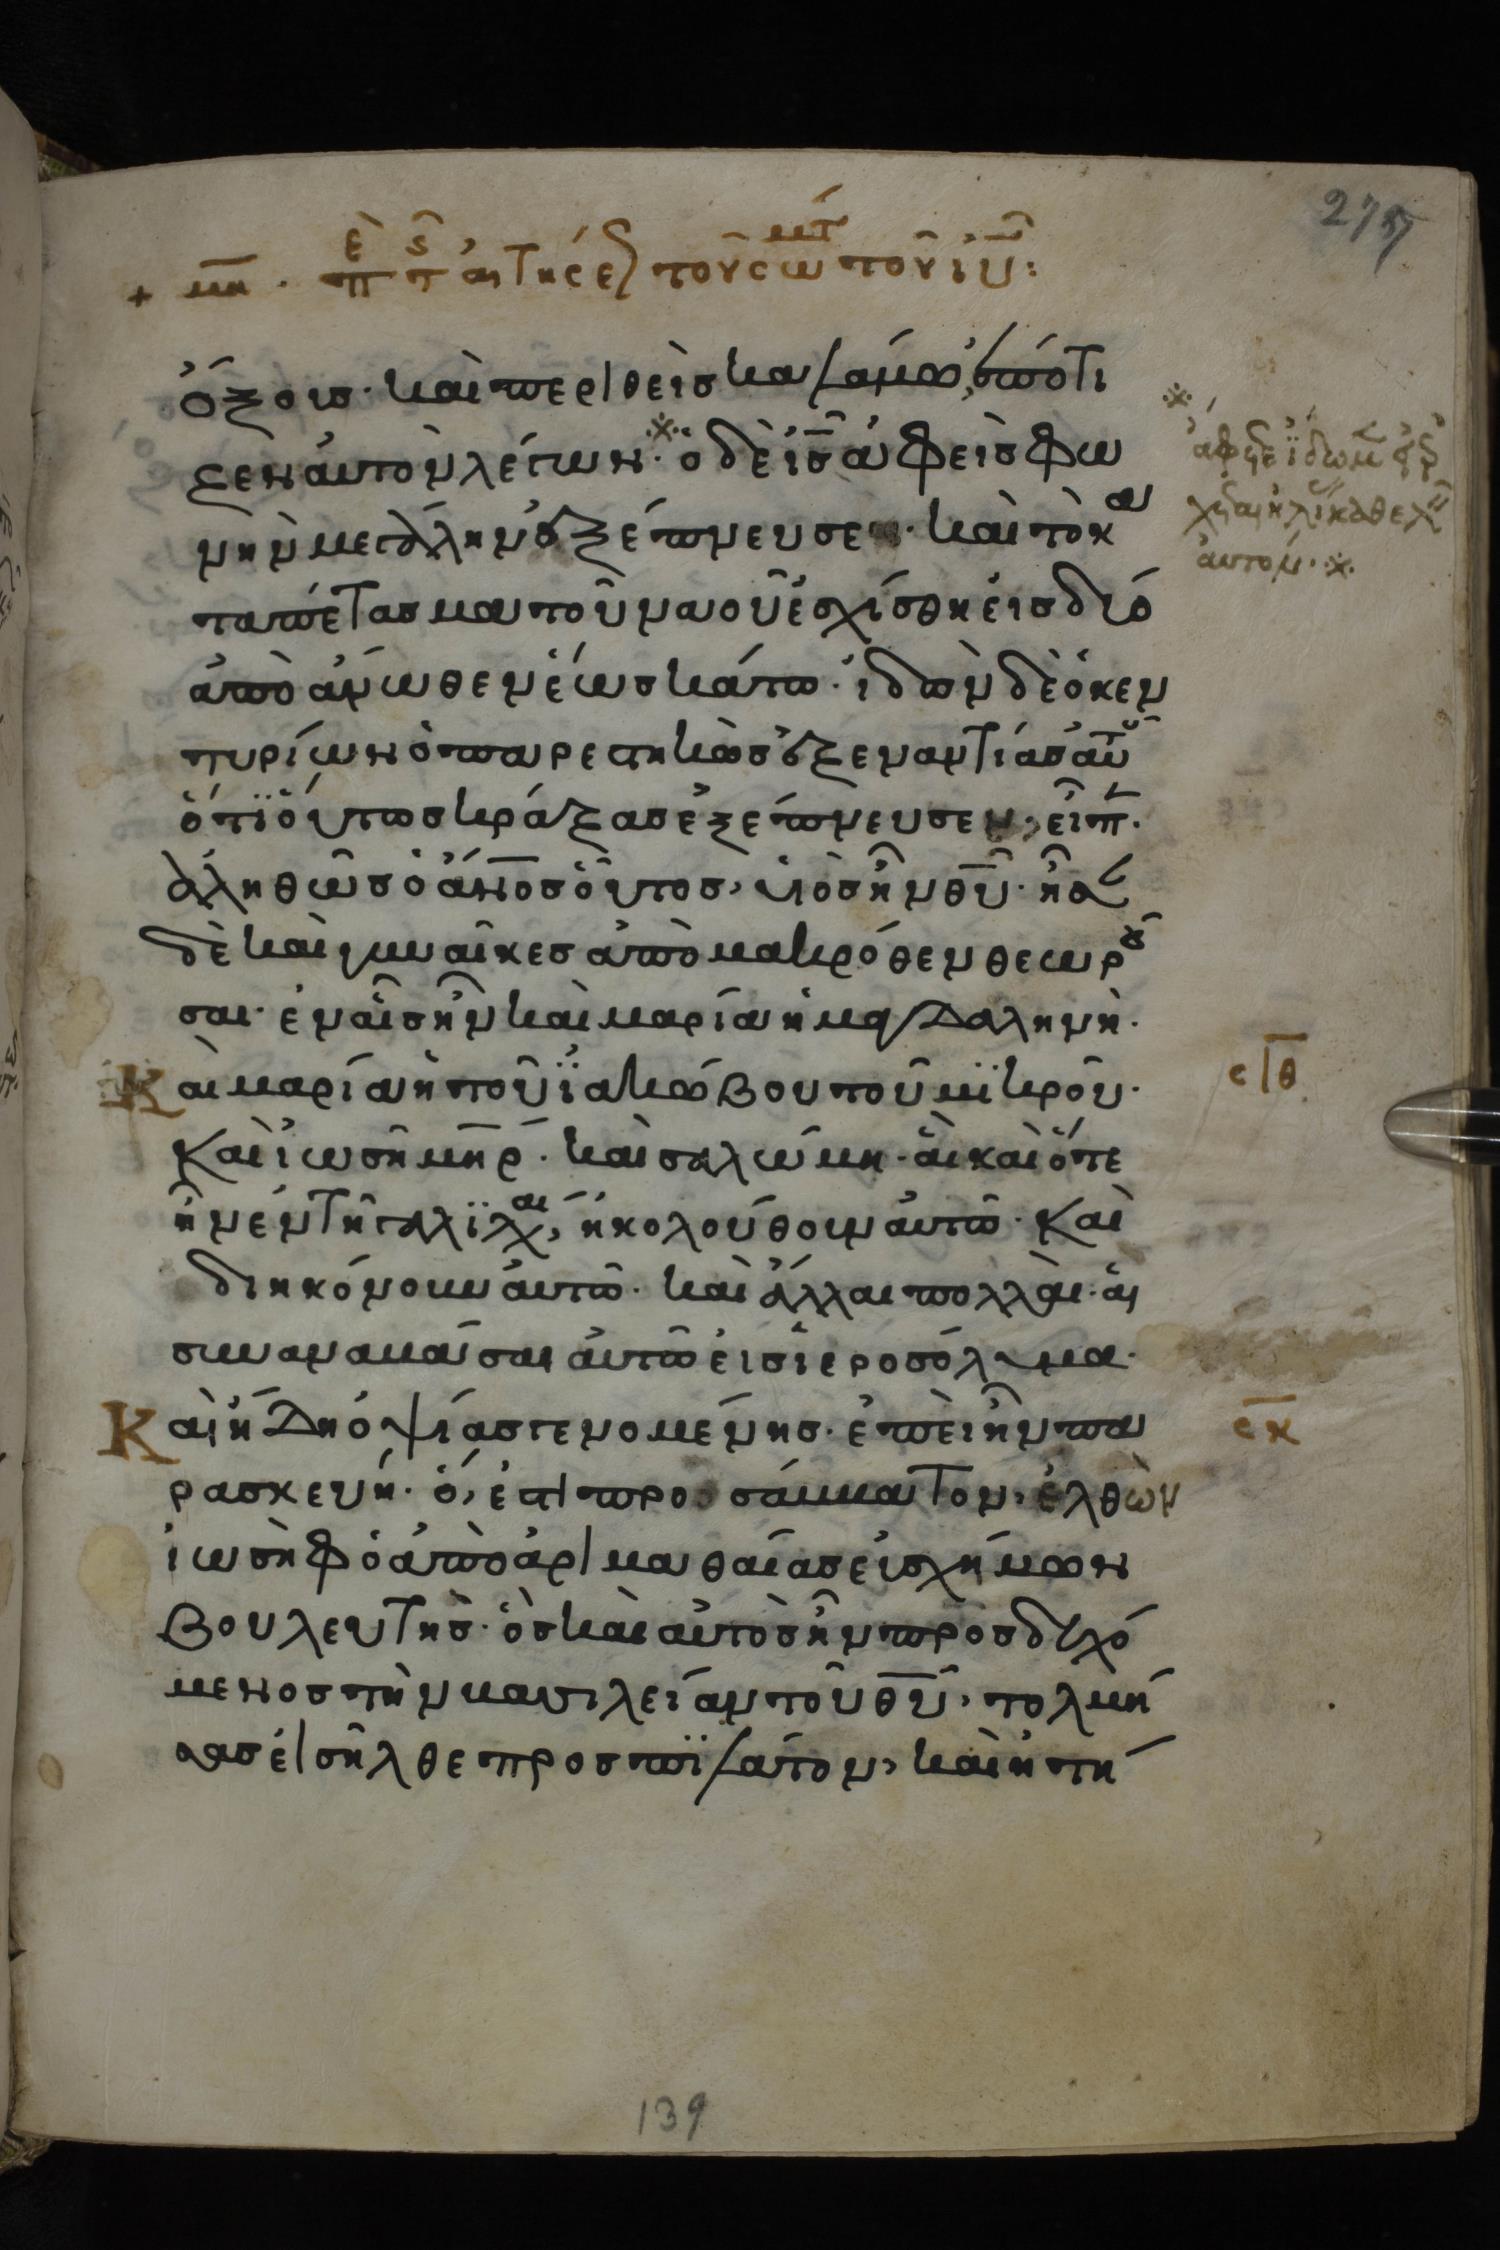 277
+ μη · περὶ τῆς αἰτήσε τοῦ σώματ τοῦ ιυ :
ὄξους · καὶ περιθεὶς καλάμω, ἐπότι
ζεν αὐτὸν λέγων · ※ ὁ δὲ ις ἀφεὶς φω
νὴν μεγάλην ἐξέπνευσεν · καὶ τὸ κα
ταπέτασμα τοῦ ναοῦ ἐσχίσθη εἰς δύο
ἀπὸ ἄνωθεν ἕως κάτω · ἰδὼν δὲ ὁ κεν
τυρίων ὁ παρεστηκὼς ἐξ ἐναντίας αὐτοῦ
ὅτι οὕτως κράξας ἐξέπνευσεν · εἶπ ·
ἀληθῶς ὁ ανος οὗτος, υἱὸς ἦν θυ · ἦσ
δὲ καὶ γυναῖκες ἀπὸ μακρόθεν θεωροῦ
σαι · ἐν αἷς ἦν καὶ μαρία ἡ μαγδαληνὴ ·
Καὶ μαρία ἡ τοῦ ϊακώβου τοῦ μϊκροῦ ·
καὶ ἰωσῆ μηρ · καὶ σαλώμη · αἳ καὶ ὅτε
ἦν ἐν τῆ γαλϊλαί, ἠκολούθουν αὐτῶ · καὶ
διηκόνουν αὐτῶ · καὶ ἄλλαι πολλαὶ · αἱ
συναναβᾶσαι αὐτῶ εἰς ἱεροσόλυμα ·
Καὶ ἤδη ὀψίας γενομένης · ἐπεὶ ἦν πα
ρασκευή · ὅ, ἐστι προσάββατον, ἐλθὼν
ἰωσὴφ ὁ ἀπὸ ἀριμαθαίας εὐσχήμων
βουλευτὴς · ὃς καὶ αὐτὸς ἦν προσδεχό
μενος τὴν βασιλείαν τοῦ θυ, τολμή
σας εἰσῆλθε προς πϊλάτον, καὶ ἠτή
※ ἄφετε ἴδωμεν εἰ ἔρ
χεται ἠλίας καθελεῖν
αὐτόν · ※
σιθ
σκ
139